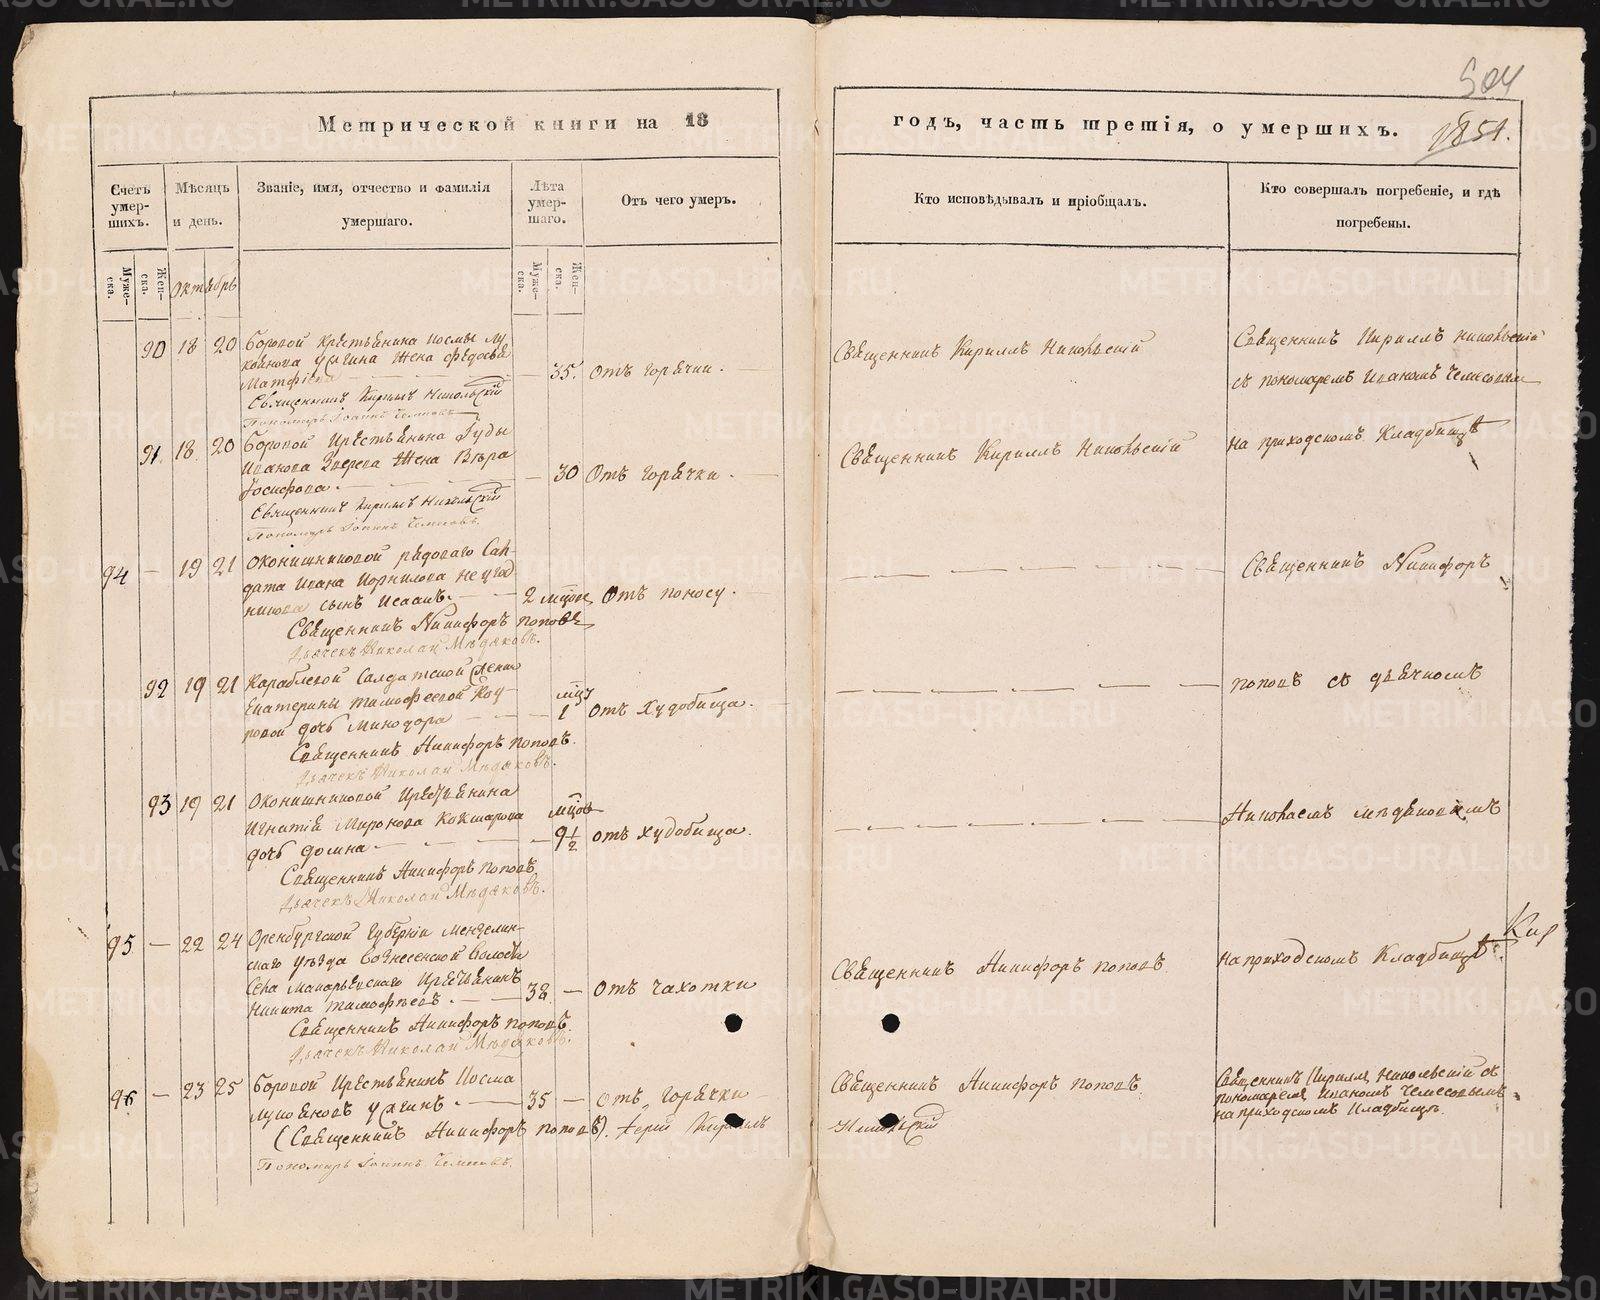 504
Метрической книги на 18
годъ, часть третія, о умершихъ.
1851.
Счетъ умер-шихъ.
Мѣсяцъ и день.
Званіе, имя, отчество и фамилія умершаго.
Лѣта умер-шаго.
Отъ чего умеръ.
Кто исповѣдывалъ и пріобщалъ.
Кто совершалъ погребеніе, и гдѣ погребены.
Муже-ска.
Жен-ска.
Октябрь
Муже-ска.
Жен-ска.
90 18 20 Боровой крестьянина Космы Лу
коянова Усагина жена Федосья
Матфіева — 35. Отъ горячки.
Священникъ Кирилъ Никольскій
Пономарь Іоаннъ
Священникъ Кириллъ Никольскій
Священникъ Кириллъ Никольскій
съ пономаремъ Иваномъ Чемесовым
91. 18 20 Боровой крестьянина Гуды
Иванова Зверева жена Вѣра
Іосифова. — 30 Отъ горячки.
Священникъ Кирилъ Никольскій
Пономарь Іоаннъ
Священникъ Кириллъ Никольскій
на приходскомъ кладбищѣ
94 — 19 21 Оконишниковой рядоваго Сал-
дата Ивана Корнилова Неугод-
никова сынъ Исаакъ. — 2 мцовъ Отъ поносу.
Священникъ Никифоръ Поповъ
Дьячекъ Николай Мѣдяковъ.
Священникъ Никифоръ
92 19 21 Караблевой салдатской жены
Екатерины Тимофеевой
дочь Минодора — мцу 1 отъ худобища.
Священникъ Никифоръ Поповъ.
Дьячекъ Николай Мѣдяковъ.
Поповъ съ дьячкомъ
93 19 21 Оконишниковой крестьянина
Игнатія Миронова Кокшарова
дочь Домна — мцов 9 1/2 отъ худобища.
Священникъ Никифоръ Поповъ
Дьячекъ Николай Мѣдяковъ.
Николаемъ Мѣдяковымъ
95 — 22 24 Оренбургской губерніи Мензелин-
скаго уѣзда Вознесенской волости
села Макарьевскаго крестьянинъ
Никита Тимофѣевъ. — 38 — Отъ чахотки
Священникъ Никифоръ Поповъ.
Дьячекъ Николай Мѣдяковъ.
Священникъ Никифоръ Поповъ
на приходскомъ кладбищѣ.
Кир
96 — 23 25 Боровой крестьянинъ Косма
Лукояновъ Усагинъ. — 35 — Отъ горячки
(Священникъ Никифоръ Поповъ). Іерей Кириллъ
Никольскій
Пономарь Іоаннъ
Священникъ Никифоръ Поповъ
Священникъ Кириллъ Никольскій съ
пономаремъ Иваномъ Чемесовымъ
на приходскомъ кладбищѣ.
METRIKI.GASO-URAL.RU